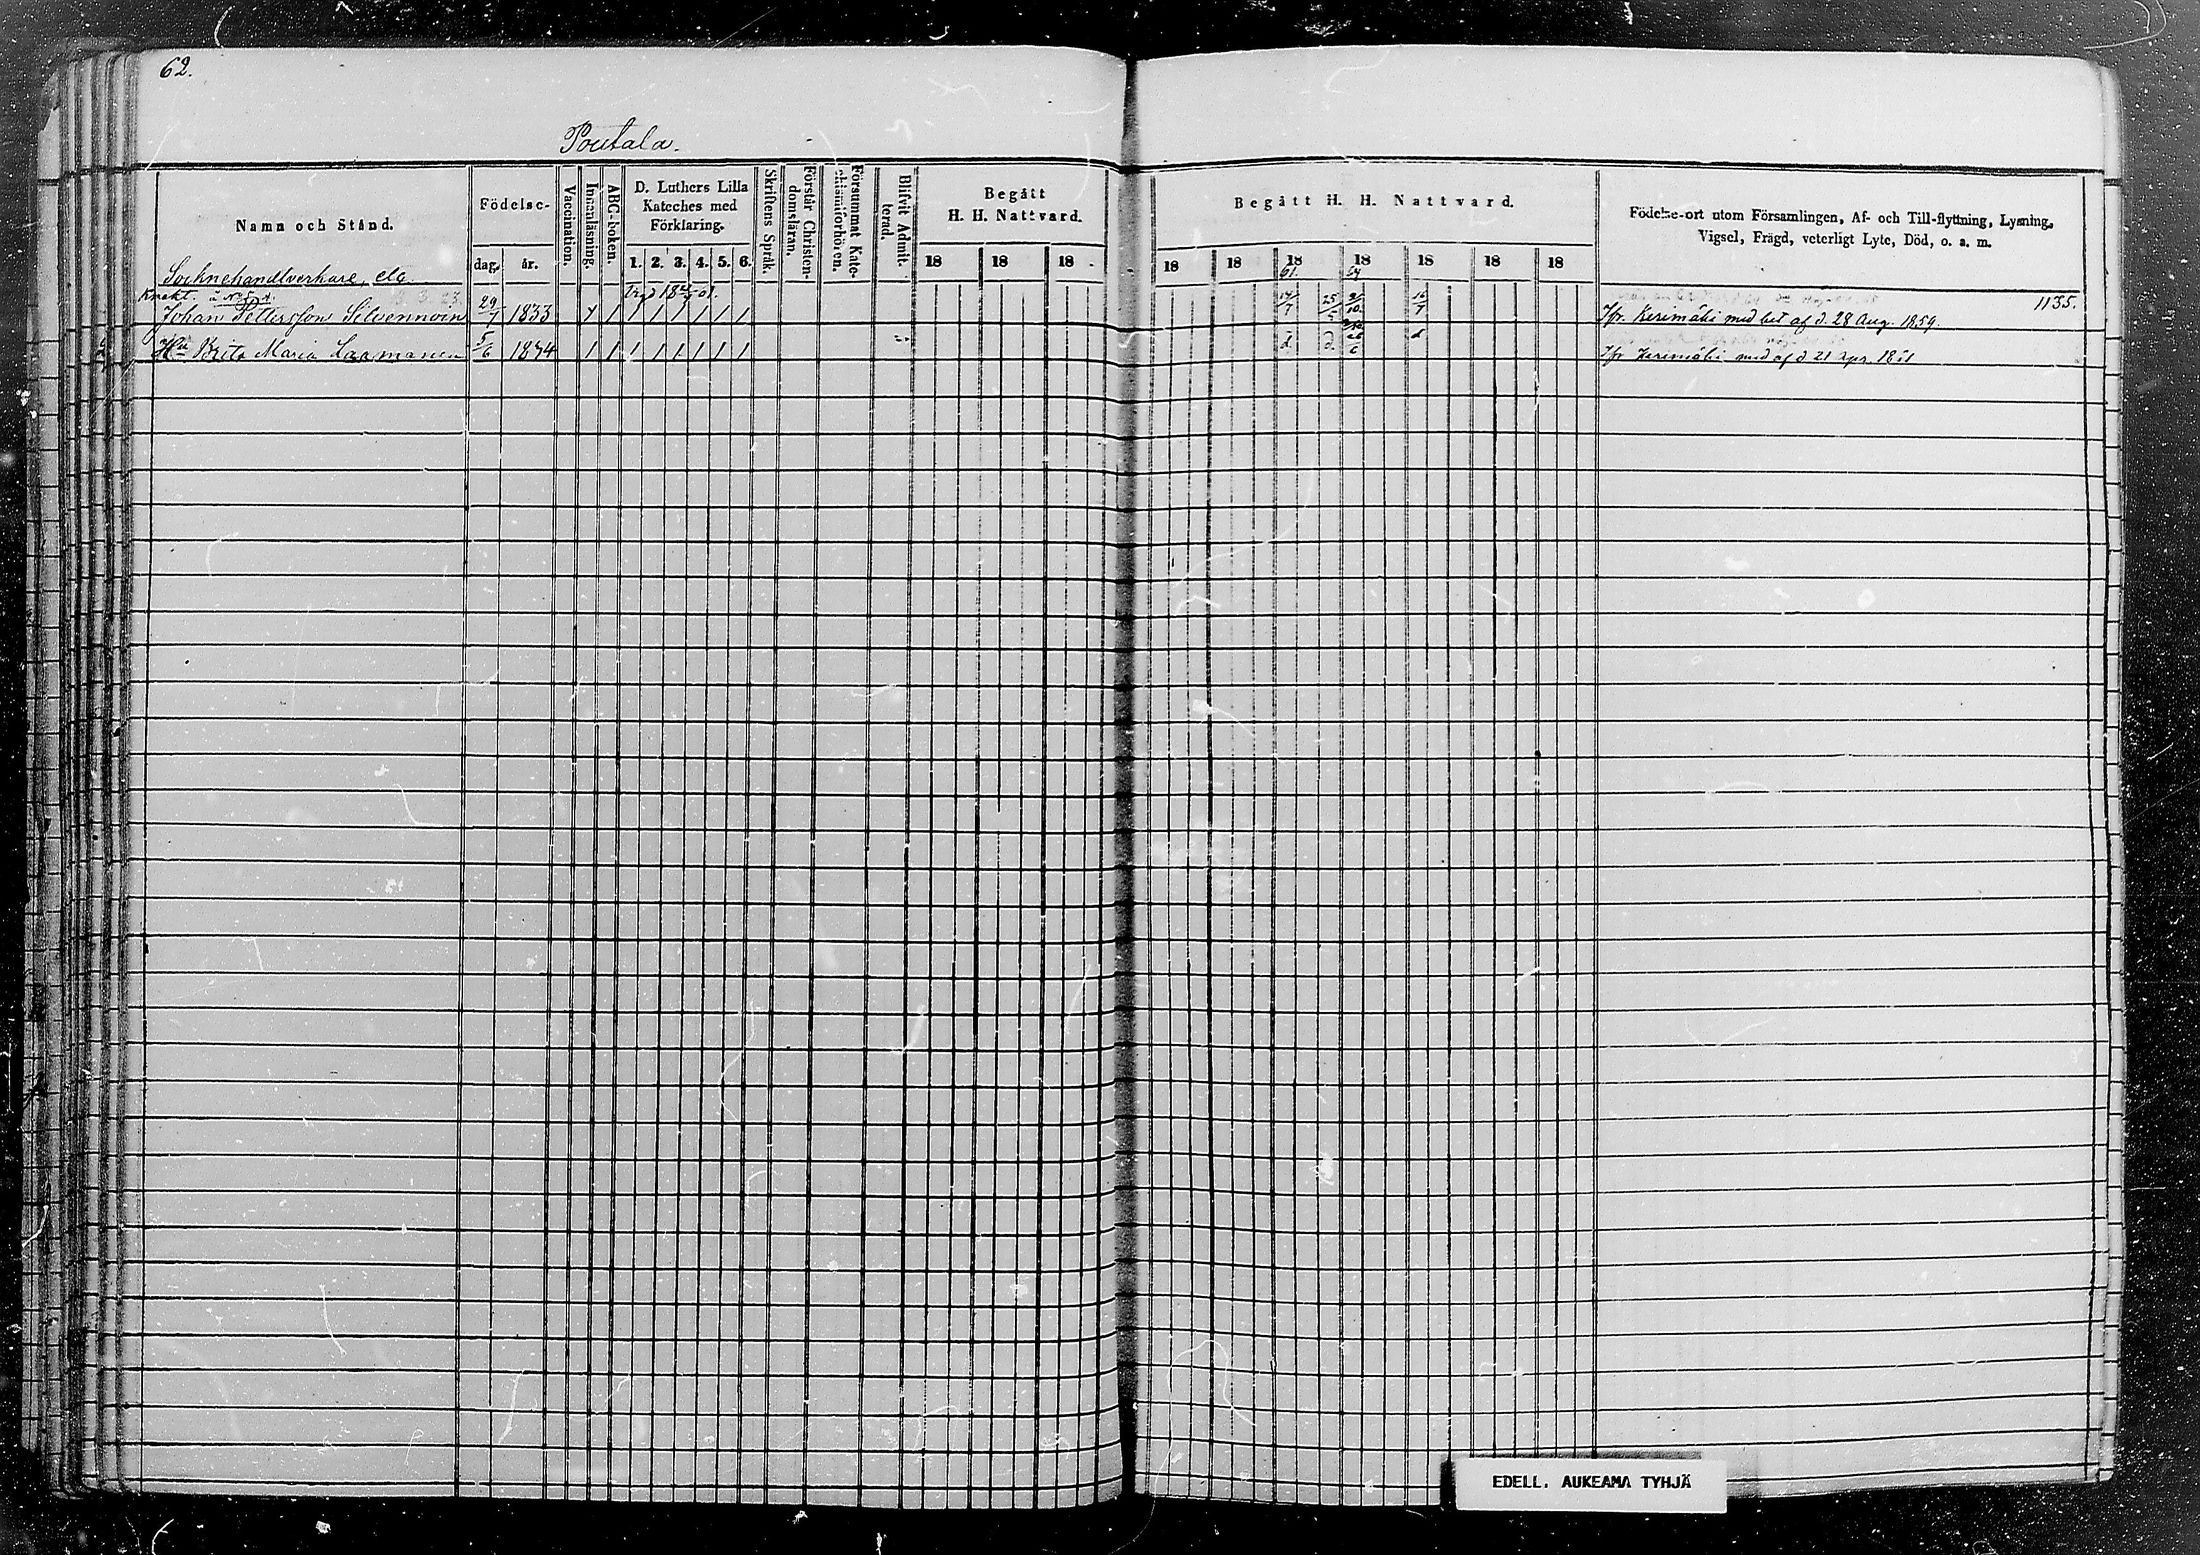 62.
Poutala.
Namn och Stånd.
Födelse-
dag. år.
Vaccination.
Innanläsning.
ABC-boken.
D. Luthers Lilla
Kateches med
Förklaring.
1. 2. 3. 4. 5. 6.
Skriftens Språk.
Förstår Christen-
domsläran.
Försummat Kate-
chismiförhören.
Blifvit Admit-
terad.
Begått
H. H. Nattvard.
18 18 18
Begått H. H. Nattvard.
18 18 18 18 18 18 18
61. 64
Födelse-ort utom Församlingen, Af- och Till-flyttning, Lysning,
Vigsel, Frägd, veterligt Lyte, Död, o. a. m.
Socknehandtverkare, etc.
Knekt.
Johan Pettersson Silvennoin 29/7 1833 1135.
Ifr. Kerimäki med bet af d. 28 Aug. 1859.
Hu Brita Maria Laamanen 5/6 1834
Ifr Kerimäki med af d 21 apr. 1861
EDELL. AUKEAMA TYHJÄ